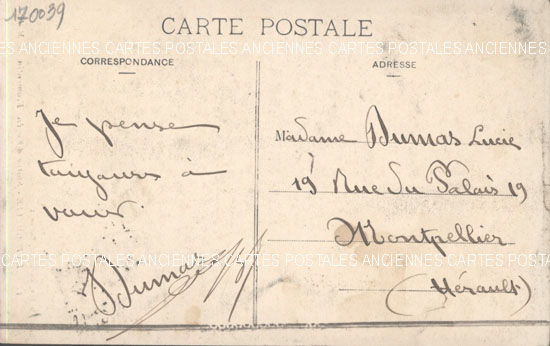 170039
CARTE POSTALE
CARTES POSTALES ANCIENNES CARTES POSTALES ANCIENNES CARTES POSTALES ANCIENNES
CORRESPONDANCE
Je pense
toujours à
vous.
J Dumas
ADRESSE
Madame Dumas Lucie
19 Rue du Palais 19
Montpellier
(Hérault)
CARTES POSTALES ANCIENNES CARTES POSTALES ANCIENNES CARTES POSTALES ANCIENNES